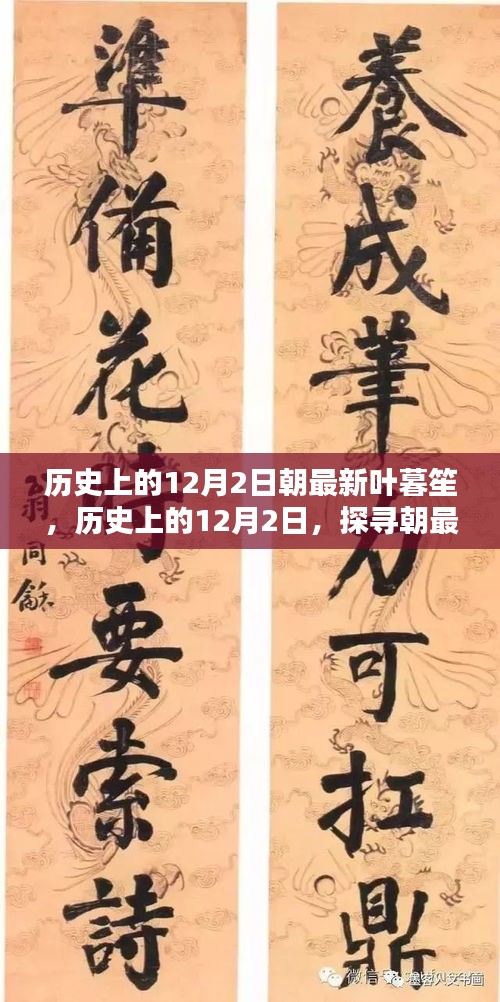 養成筆力可扛鼎
準備花要索詩
翁同龢
历史上的12月2日朝最新叶暮笙
，历史上的12月2日，探寻朝最
微信
墨客人文书画